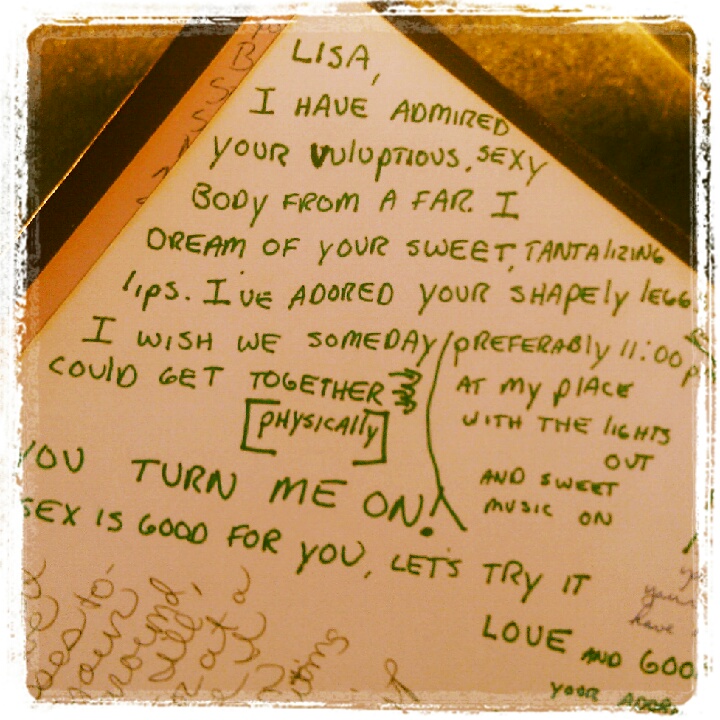 LISA,
I HAVE ADMIRED
YOUR VULUPTIOUS, SEXY
BODY FROM A FAR. I
DREAM OF YOUR SWEET, TANTALIZING
LIPS. I'VE ADORED YOUR SHAPELY LEGS
I WISH WE SOMEDAY
COULD GET TOGETHER
[PHYSICALLY]
PREFERABLY 11:00 P
AT MY PLACE
WITH THE LIGHTS
OUT
AND SWEET
MUSIC ON
YOU TURN ME ON!
SEX IS GOOD FOR YOU, LET'S TRY IT
LOVE AND GOO
YOUR
have